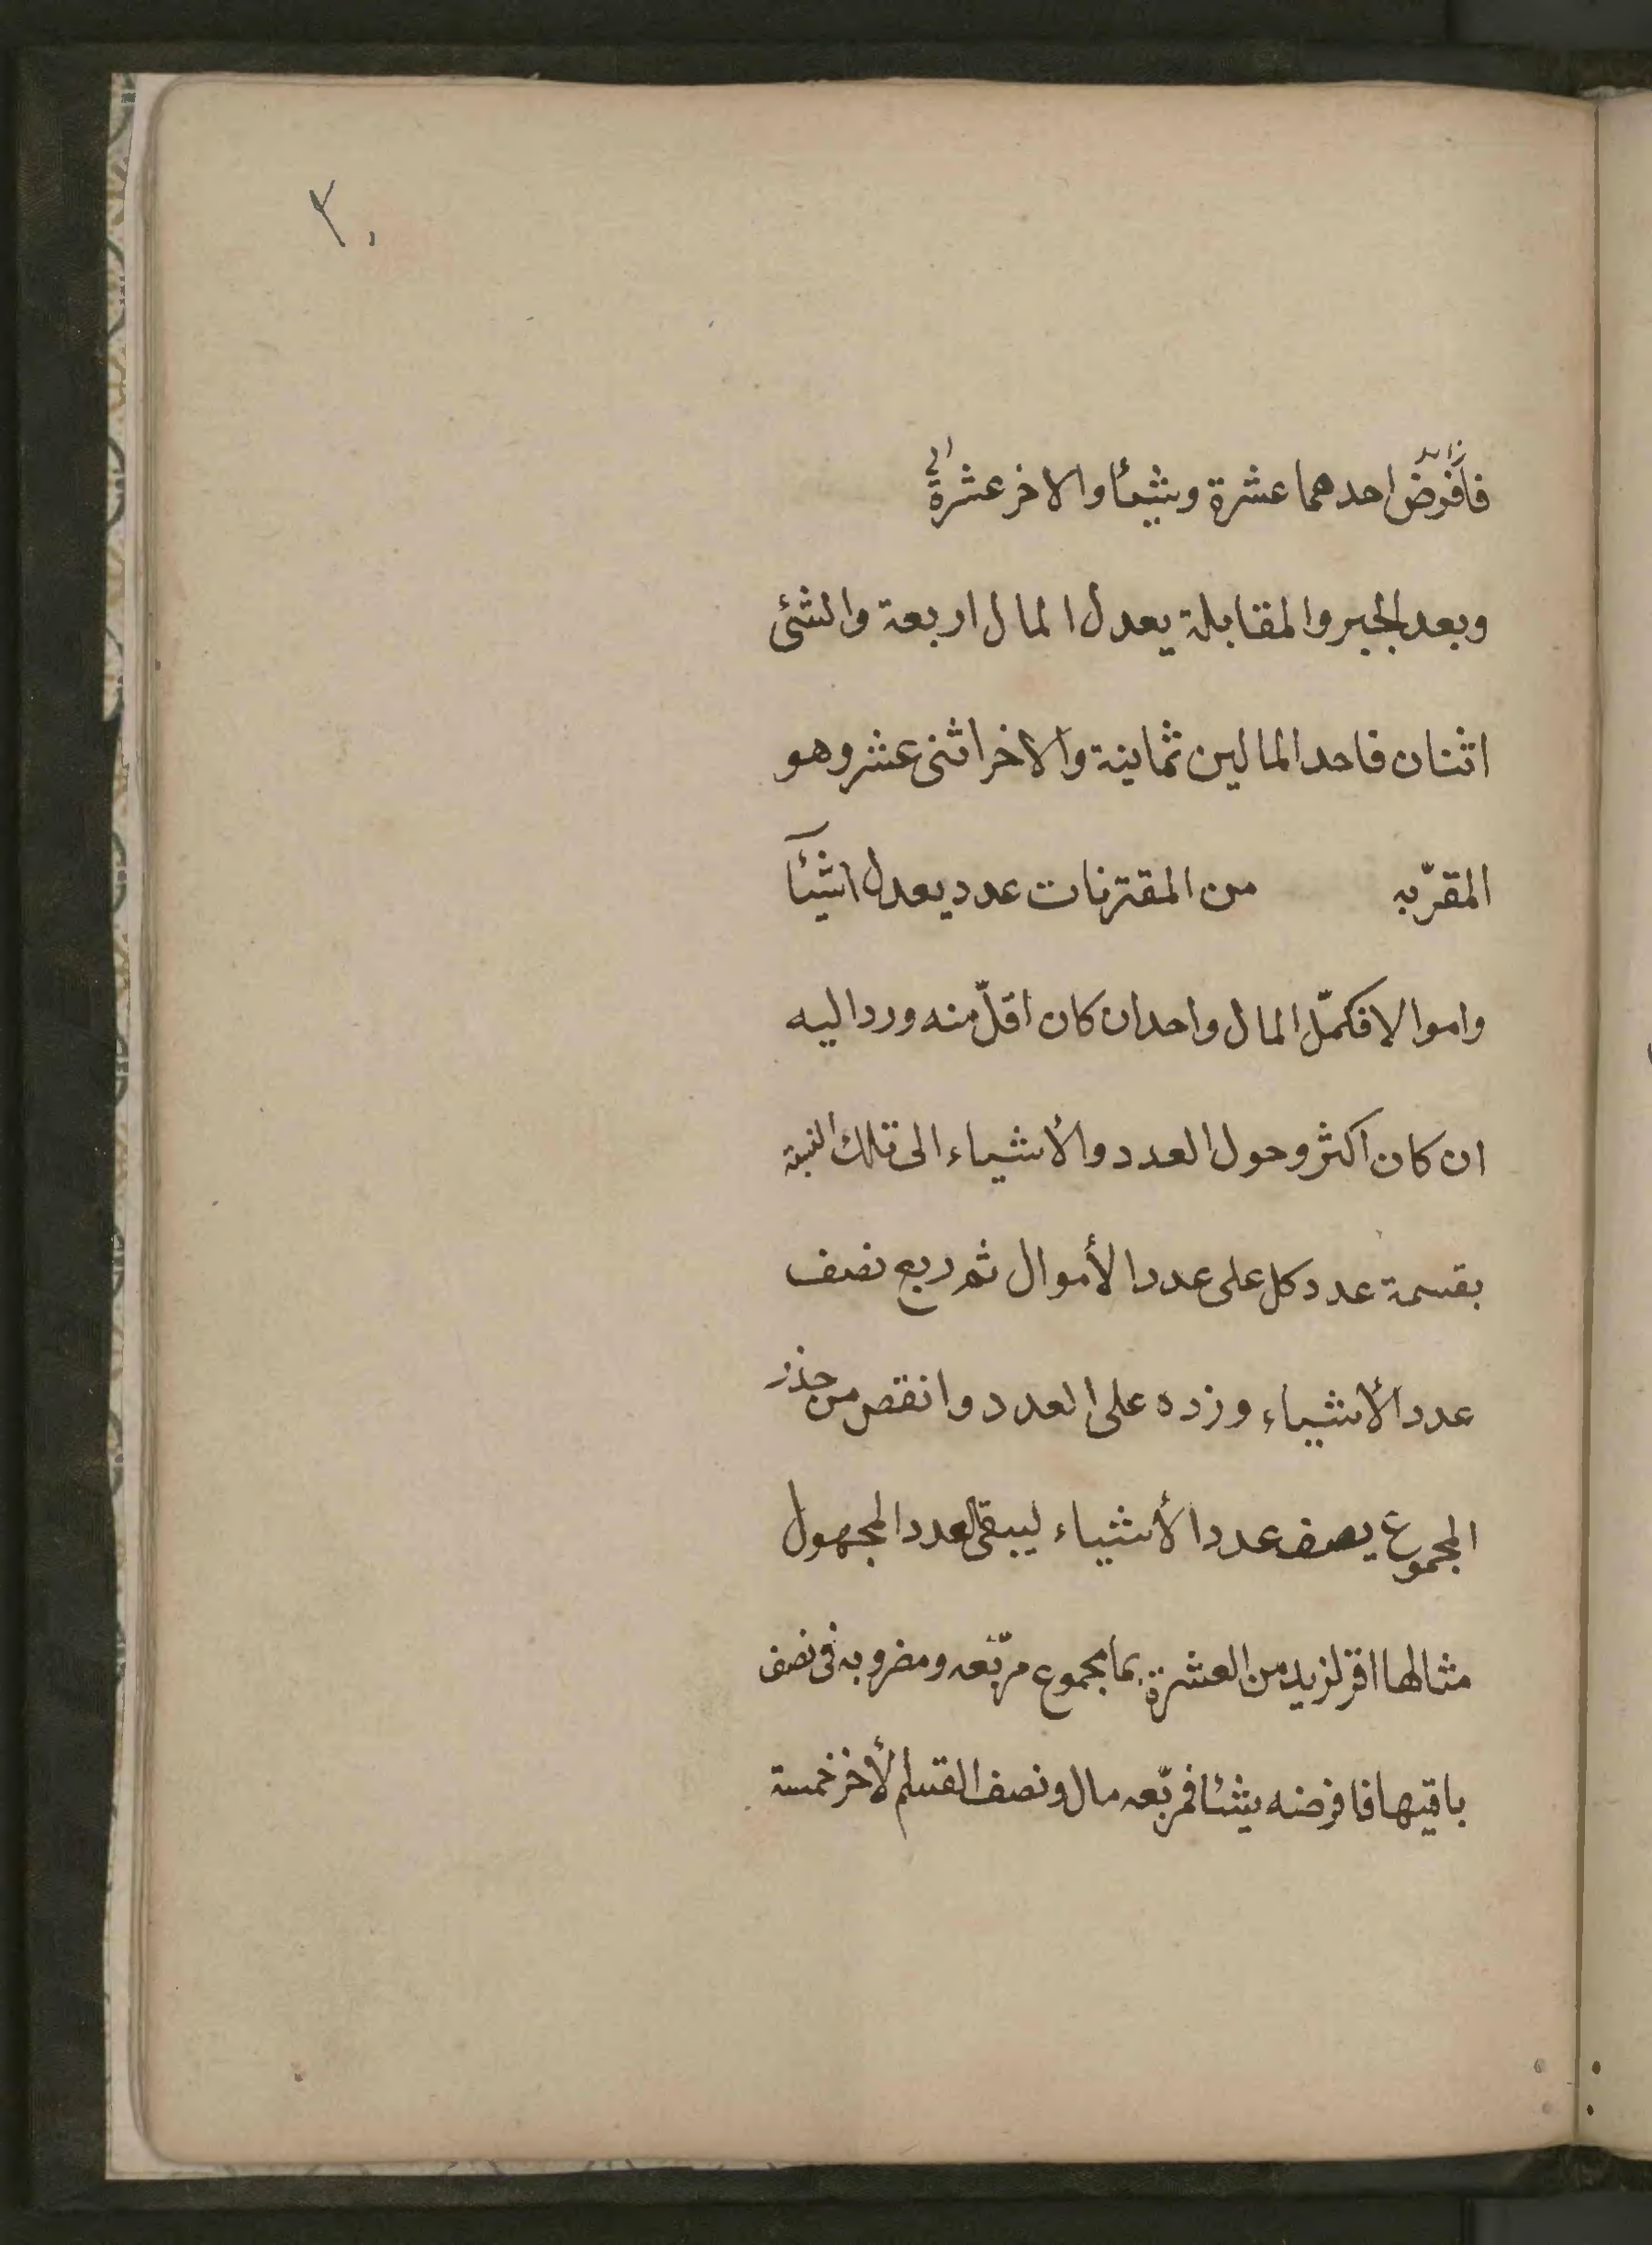 ٣٠
فافرض احدهما عشرة وشيئا والاخر عشرة
وبعد الجبر والمقابلة يعدل المال اربعة والشئ
اثنان فاحد المالين ثمانية والاخر اثنى عشر وهو
المقرّ به من المقترنات عدد يعدل اشيآ
واموالا فكمّل المال واحدان كان اقلّ منه ورد اليه
ان كان اكثر وحول العدد والأشياء الى تلك النسبة
بقسمة عدد كل على عدد الأموال ثم ربع نصف
عدد الأشياء وزده على العدد وانقص من جذر
المجموع نصف عدد الأشياء ليبقى العدد المجهول
مثالها اقر لزيد من العشرة بما مجموع مربّعه ومضروبه فى نصف
باقيها فافرضه شيئا فمربّعه مال ونصف القسم الأخر خمسة